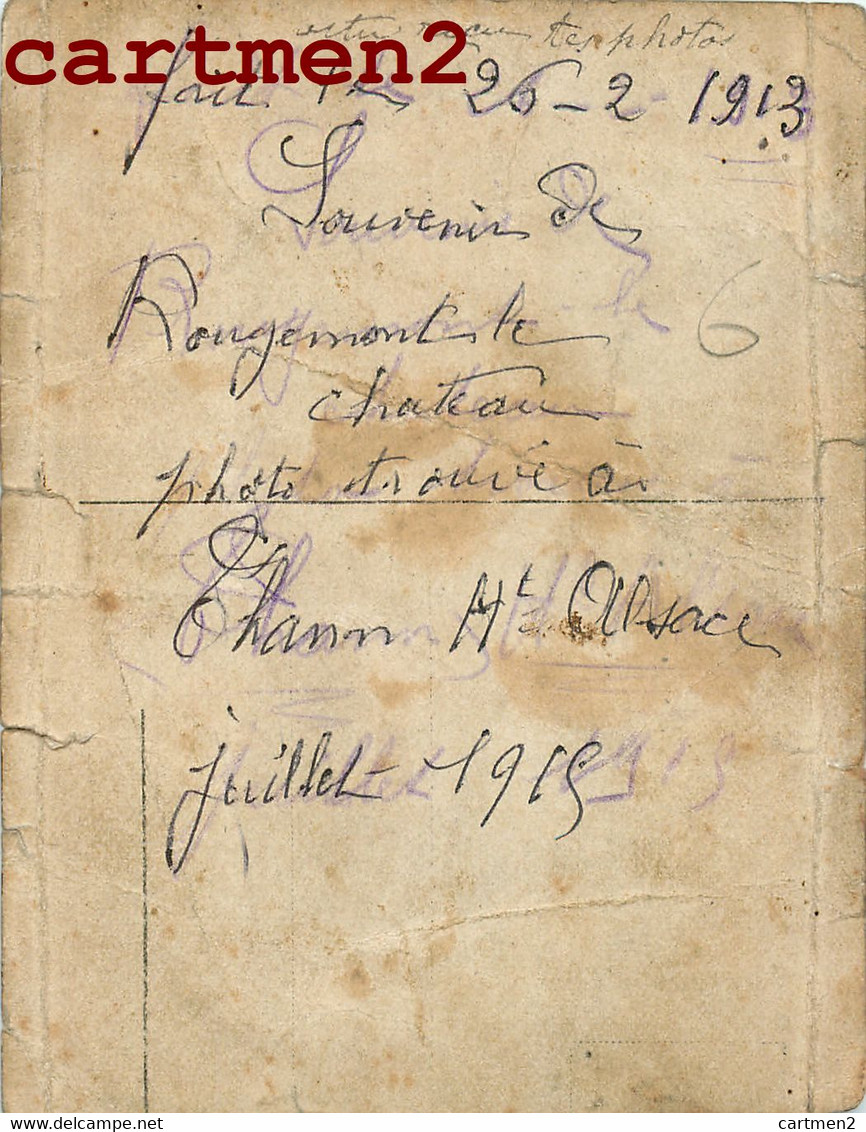 cartmen2
tes photos
fait le 26-2-1913
Souvenir de
Rougemont le
chateau
6
photo trouvé à
Thann Ht Alsace
juillet 1915
delcampe.net
cartmen2